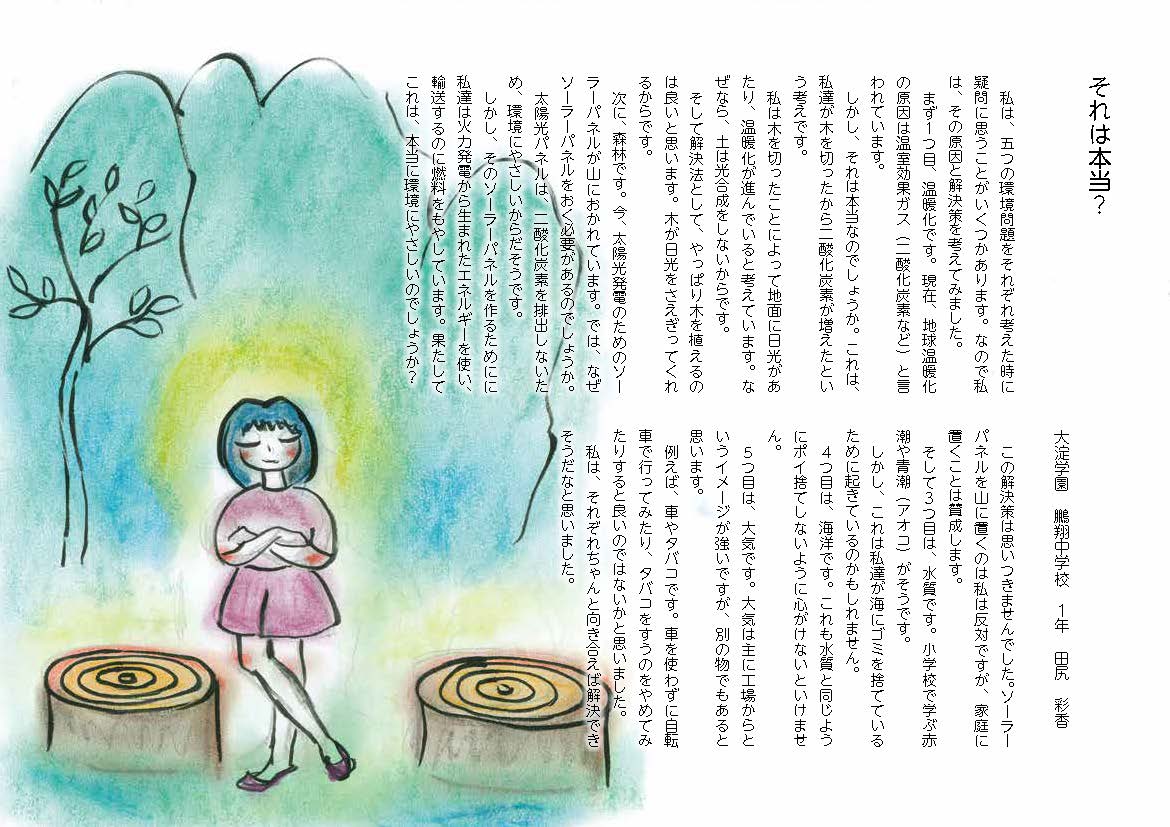 それは本当？
大淀学園　鵬翔中学校　１年　田尻　彩香
　私は、五つの環境問題をそれぞれ考えた時に
疑問に思うことがいくつかあります。なので私
は、その原因と解決策を考えてみました。
　まず１つ目、温暖化です。現在、地球温暖化
の原因は温室効果ガス（二酸化炭素など）と言
われています。
　しかし、それは本当なのでしょうか。これは、
私達が木を切ったから二酸化炭素が増えたとい
う考えです。
　私は木を切ったことによって地面に日光があ
たり、温暖化が進んでいると考えています。な
ぜなら、土は光合成をしないからです。
　そして解決法として、やっぱり木を植えるの
は良いと思います。木が日光をさえぎってくれ
るからです。
　次に、森林です。今、太陽光発電のためのソー
ラーパネルが山におかれています。では、なぜ
ソーラーパネルをおく必要があるのでしょうか。
　太陽光パネルは、二酸化炭素を排出しないた
め、環境にやさしいからだそうです。
　しかし、そのソーラーパネルを作るためにに
私達は火力発電から生まれたエネルギーを使い、
輸送するのに燃料をもやしています。果たして
これは、本当に環境にやさしいのでしょうか？
　この解決策は思いつきませんでした。ソーラー
パネルを山に置くのは私は反対ですが、家庭に
置くことは賛成します。
　そして３つ目は、水質です。小学校で学ぶ赤
潮や青潮（アオコ）がそうです。
　しかし、これは私達が海にゴミを捨てている
ために起きているのかもしれません。
　４つ目は、海洋です。これも水質と同じよう
にポイ捨てしないように心がけないといけませ
ん。
　５つ目は、大気です。大気は主に工場からと
いうイメージが強いですが、別の物でもあると
思います。
　例えば、車やタバコです。車を使わずに自転
車で行ってみたり、タバコをすうのをやめてみ
たりすると良いのではないかと思いました。
　私は、それぞれちゃんと向き合えば解決でき
そうだなと思いました。